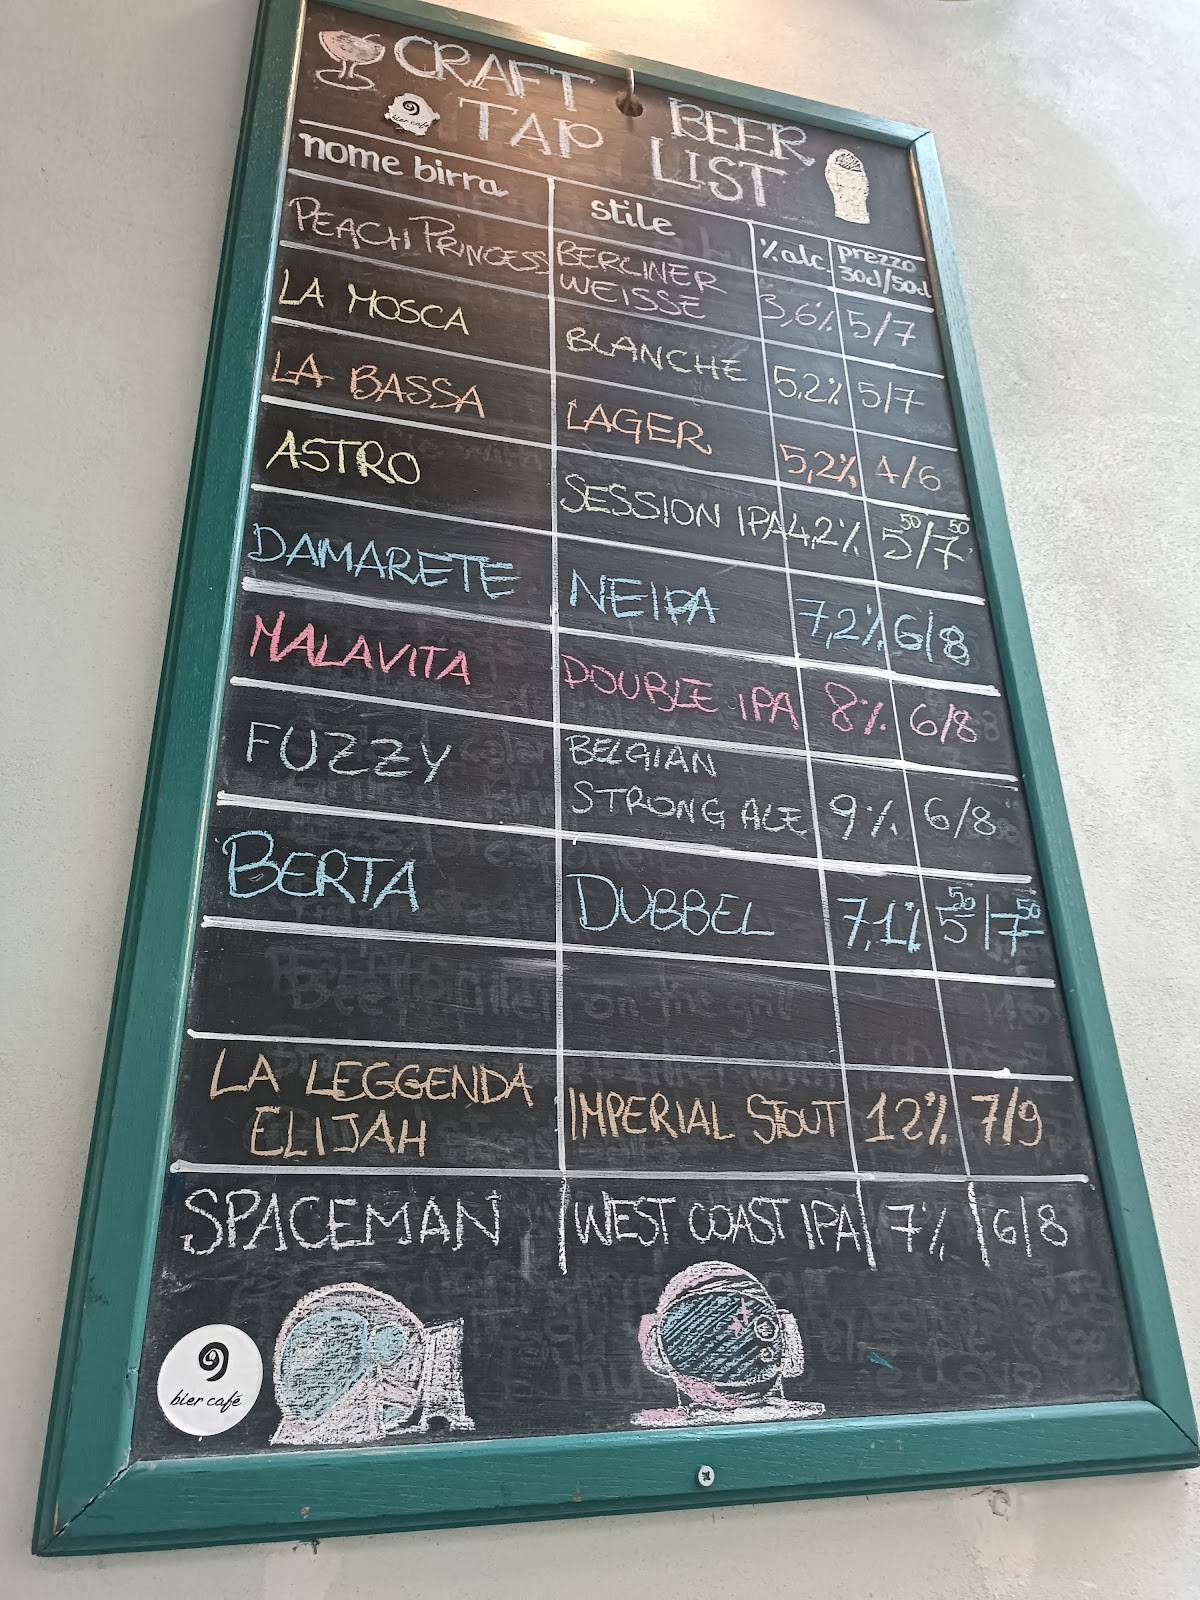 CRAFT BEER
TAP LIST
bier café
nome birra stile % alc. prezzo 30cl/50cl
PEACH PRINCESS BERLINER WEISSE 3,6% 5/7
LA MOSCA BLANCHE 5,2% 5/7
LA BASSA LAGER 5,2% 4/6
ASTRO SESSION IPA 4,2% 5 50/7 50
DAMARETE NEIPA 7,2% 6/8
MALAVITA DOUBLE IPA 8% 6/8
FUZZY BELGIAN STRONG ALE 9% 6/8
BERTA DUBBEL 7,1% 5 50/7 50
LA LEGGENDA ELIJAH IMPERIAL STOUT 12% 7/9
SPACEMAN WEST COAST IPA 7% 6/8
bier café